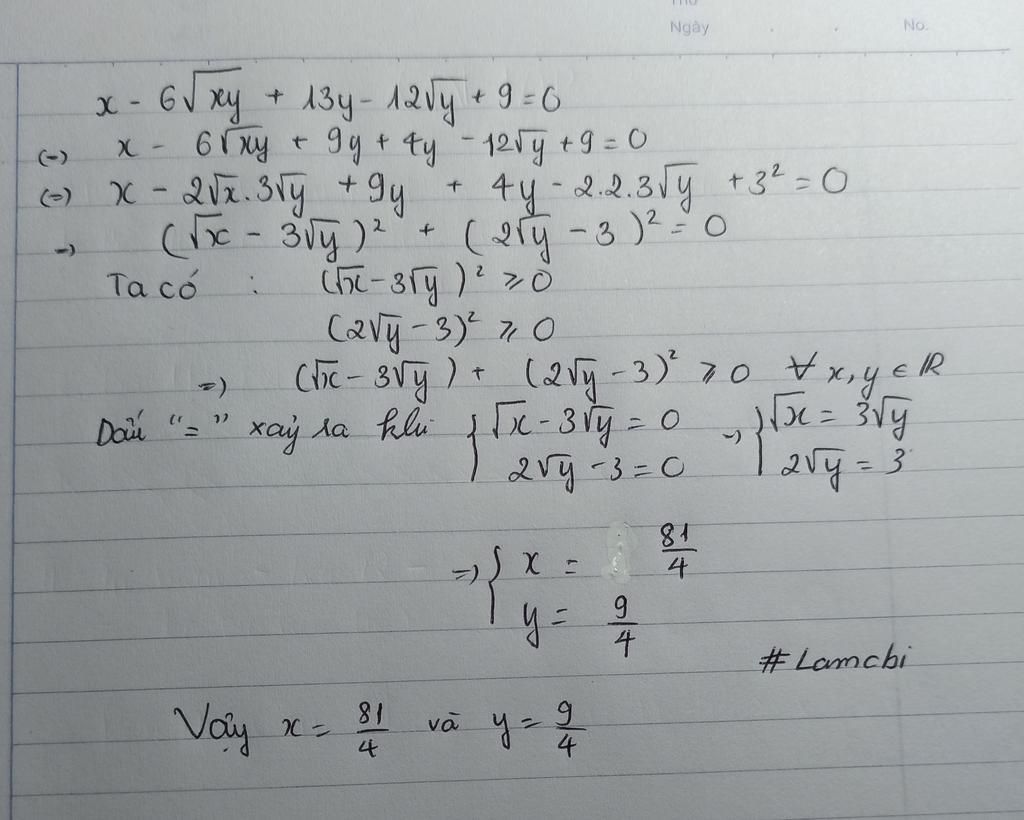 Thứ
Ngày . . No.
x - 6√xy + 13y - 12√y + 9 = 0
(=) x - 6√xy + 9y + 4y - 12√y + 9 = 0
(=) x - 2√x.3√y + 9y + 4y - 2.2.3√y + 3² = 0
=) (√x - 3√y)² + (2√y - 3)² = 0
Ta có : (√x - 3√y)² ⩾ 0
(2√y - 3)² ⩾ 0
=) (√x - 3√y) + (2√y - 3)² ⩾ 0 ∀ x, y ∈ ℝ
Dấu "=" xảy ra khi { √x - 3√y = 0 =) { √x = 3√y
2√y - 3 = 0 2√y = 3
=) { x = 81/4
y = 9/4
# Lamchi
Vậy x = 81/4 và y = 9/4